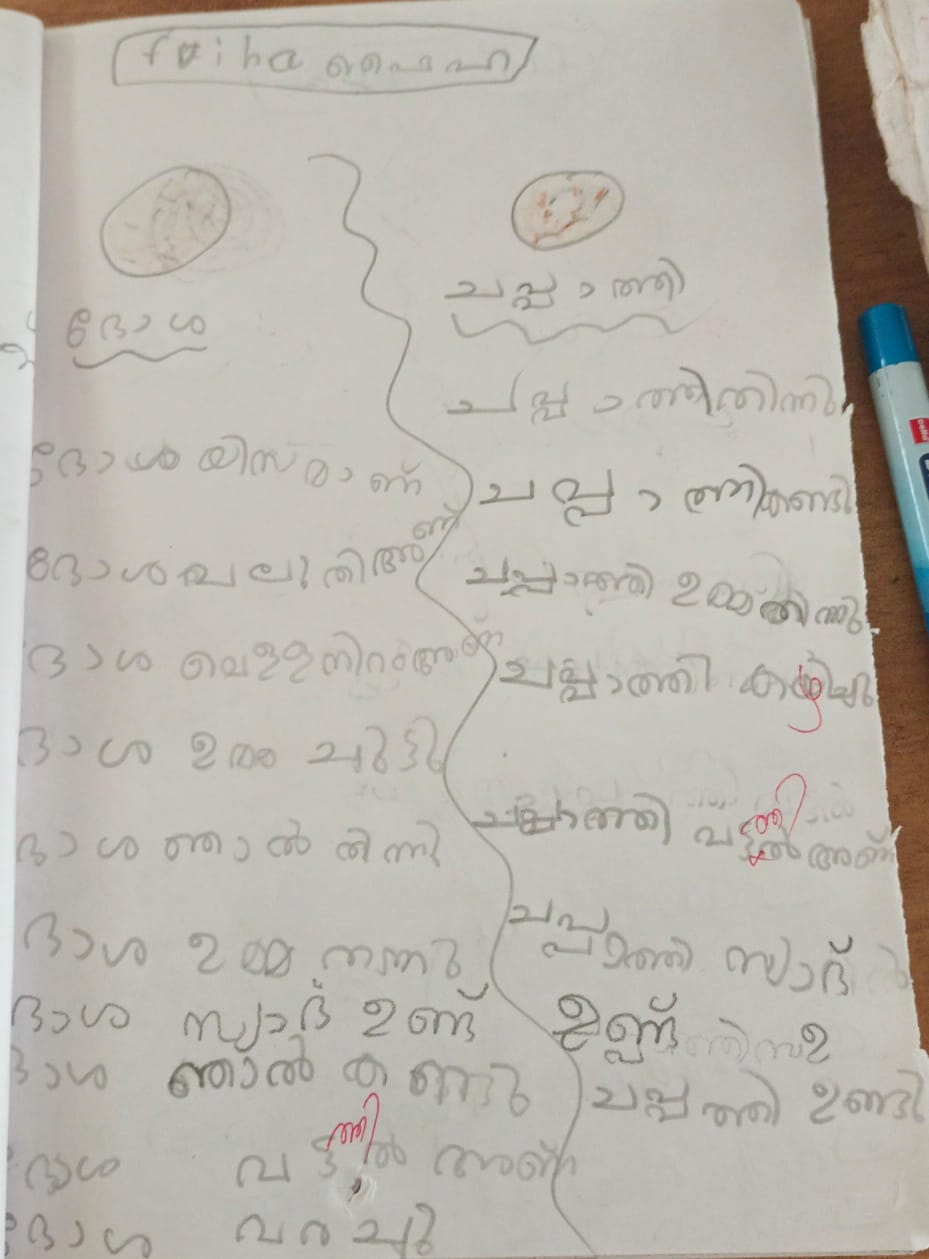 faiha ഫൈഹ
ദോശ
ദോശ യിസ്റമാണ്
ദോശ വലുതിആണ്
ദോശ വെള്ളനിറംആണ്
ദാശ ഉമ്മ ചുട്ടു
ദാശ ഞാൻ തിന്നു
ദാശ ഉമ്മ തന്നു
ദാശ സ്വാദ് ഉണ്ട്
ദാശ ഞാൻ കണ്ടു
ദാശ വട്ടത്തിൽ ആണ്
ദോശ വരച്ചു
ചപ്പാത്തി
ചപ്പാത്തിതിന്നു
ചപ്പാത്തികണ്ടു
ചപ്പാത്തി ഉമ്മതിന്നു
ചപ്പാത്തി കഴിച്ചു
ചപ്പാത്തി വട്ടത്തിൽആണ്
ചപ്പാത്തി സ്വാദ്
ഉണ്ട്
ചപ്പത്തി ഉണ്ടു